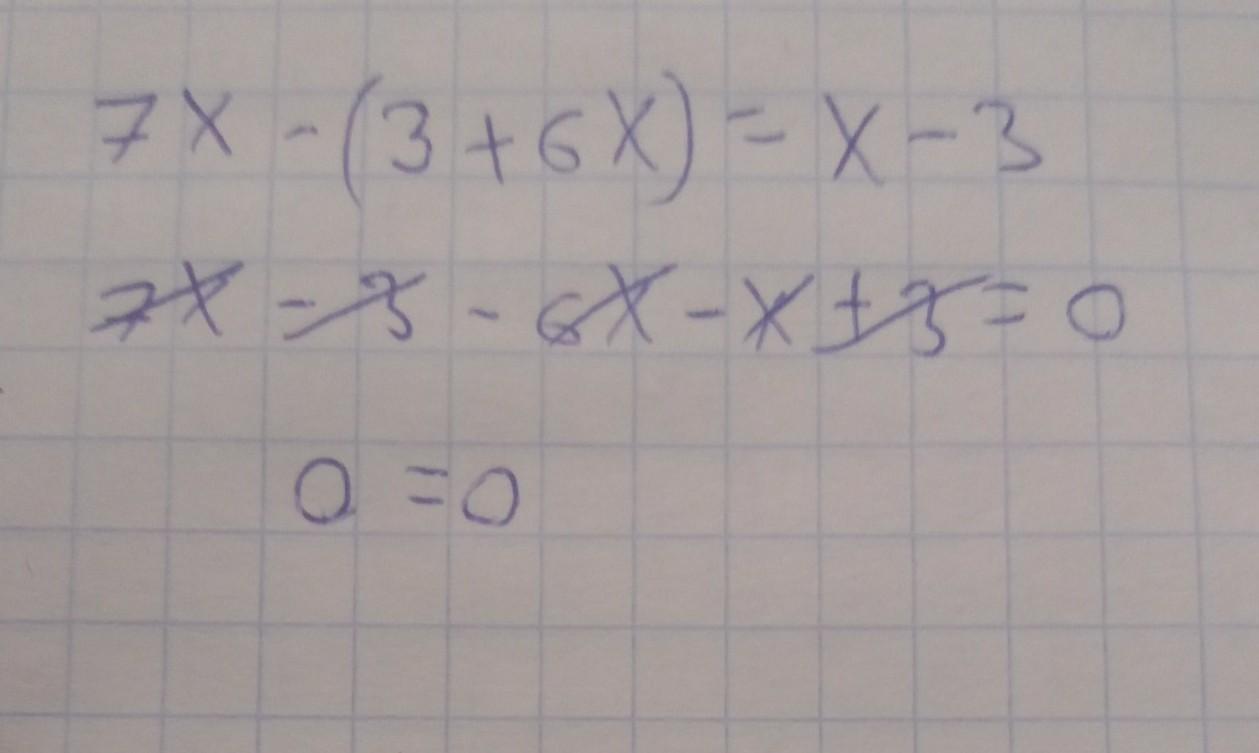 7x - (3 + 6x) = x - 3
7x - 3 - 6x - x + 3 = 0
0 = 0